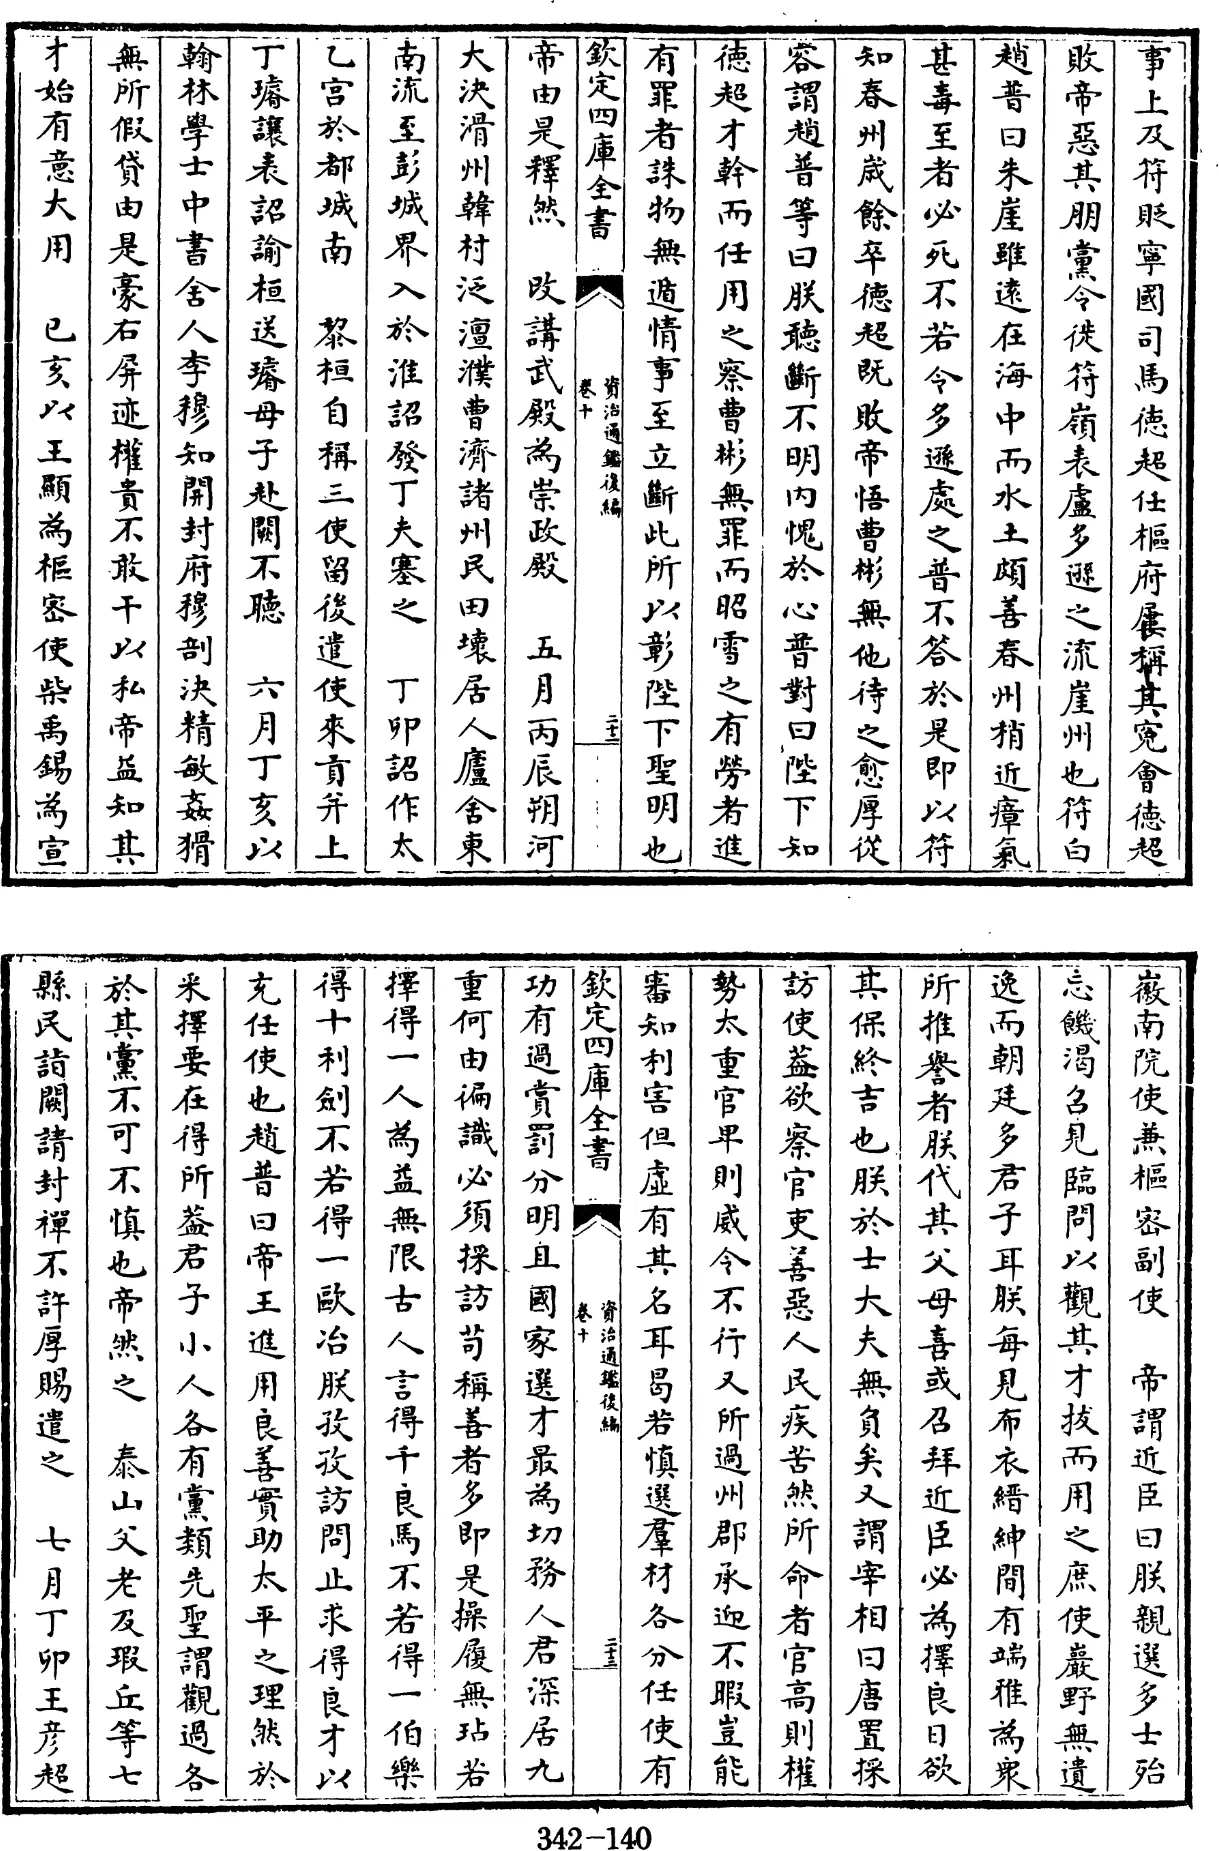 事上及符貶寧國司馬德超任樞府屢稱其寃會德超
敗帝惡其朋黨令徙符嶺表盧多遜之流崖州也符白
趙普曰朱崖雖遠在海中而水土頗善春州稍近瘴氣
甚毒至者必死不若令多遜處之普不答於是即以符
知春州歲餘卒德超既敗帝悟曹彬無他待之愈厚從
容謂趙普等曰朕聽斷不明内愧於心普對曰陛下知
德超才幹而任用之察曹彬無罪而昭雪之有勞者進
有罪者誅物無遁情事至立斷此所以彰陛下聖明也
欽定四庫全書 資治通鑑後編 卷十 二十二
帝由是釋然 改講武殿為崇政殿 五月丙辰朔河
大決滑州韓村泛澶濮曹濟諸州民田壞居人廬舍東
南流至彭城界入於淮詔發丁夫塞之 丁卯詔作太
乙宫於都城南 黎桓自稱三使留後遣使來貢并上
丁璿讓表詔諭桓送璿母子赴闕不聽 六月丁亥以
翰林學士中書舍人李穆知開封府穆剖決精敏姦猾
無所假貸由是豪右屏迹權貴不敢干以私帝益知其
才始有意大用 已亥以王顯為樞密使柴禹錫為宣
徽南院使兼樞密副使 帝謂近臣曰朕親選多士殆
忘饑渴召見臨問以觀其才拔而用之庶使巖野無遺
逸而朝廷多君子耳朕每見布衣縉紳間有端雅為衆
所推譽者朕代其父母喜或召拜近臣必為擇良日欲
其保終吉也朕於士大夫無負矣又謂宰相曰唐置採
訪使蓋欲察官吏善惡人民疾苦然所命者官高則權
勢太重官卑則威令不行又所過州郡承迎不暇豈能
審知利害但虛有其名耳曷若慎選羣材各分任使有
欽定四庫全書 資治通鑑後編 卷十 二十三
功有過賞罰分明且國家選才最為切務人君深居九
重何由徧識必須採訪茍稱善者多即是操履無玷若
擇得一人為益無限古人言得千良馬不若得一伯樂
得十利劍不若得一歐冶朕孜孜訪問止求得良才以
充任使也趙普曰帝王進用良善實助太平之理然於
采擇要在得所蓋君子小人各有黨類先聖謂觀過各
於其黨不可不慎也帝然之 泰山父老及瑕丘等七
縣民詣闕請封禪不許厚賜遣之 七月丁卯王彦超
342-140